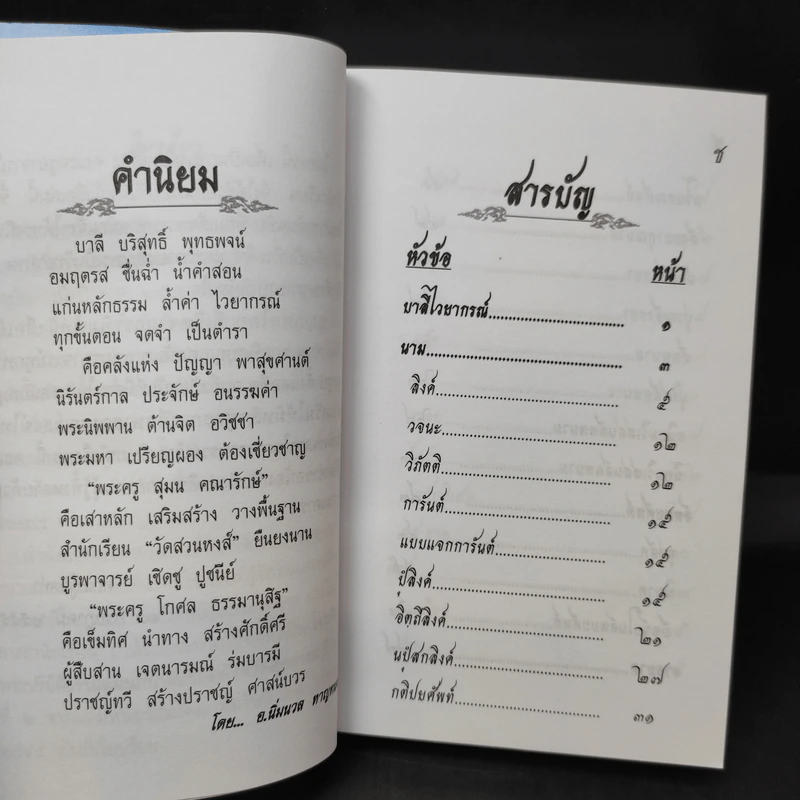 คำนิยม
บาลี บริสุทธิ์ พุทธพจน์
อมฤตรส ชื่นฉ่ำ น้ำคำสอน
แก่นหลักธรรม ล้ำค่า ไวยากรณ์
ทุกขั้นตอน จดจำ เป็นตำรา
คือคลังแห่ง ปัญญา พาสุขศานต์
นิรันดร์กาล ประจักษ์ อนรรฆค่า
พระนิพพาน ต้านจิต อวิชชา
พระมหา เปรียญผอง ต้องเชี่ยวชาญ
"พระครู สุมน คณารักษ์"
คือเสาหลัก เสริมสร้าง วางพื้นฐาน
สำนักเรียน "วัดสวนหงส์" ยืนยงนาน
บูรพาจารย์ เชิดชู ปูชนีย์
"พระครู โกศล ธรรมานุสิฐ"
คือเข็มทิศ นำทาง สร้างศักดิ์ศรี
ผู้สืบสาน เจตนารมณ์ ร่มบารมี
ปราชญ์ทวี สร้างปราชญ์ ศาสน์บวร
โดย... อ.นิ่มนวล
ช
สารบัญ
หัวข้อ หน้า
บาลีไวยากรณ์ ๑
นาม ๓
ลิงค์ ๕
วจนะ ๑๒
วิภัตติ ๑๒
การันต์ ๑๕
แบบแจกการันต์ ๑๕
ปุํลิงค์ ๑๕
อิตฺถีลิงค์ ๒๑
นปุํสกลิงค์ ๒๗
กติปยศัพท์ ๓๑